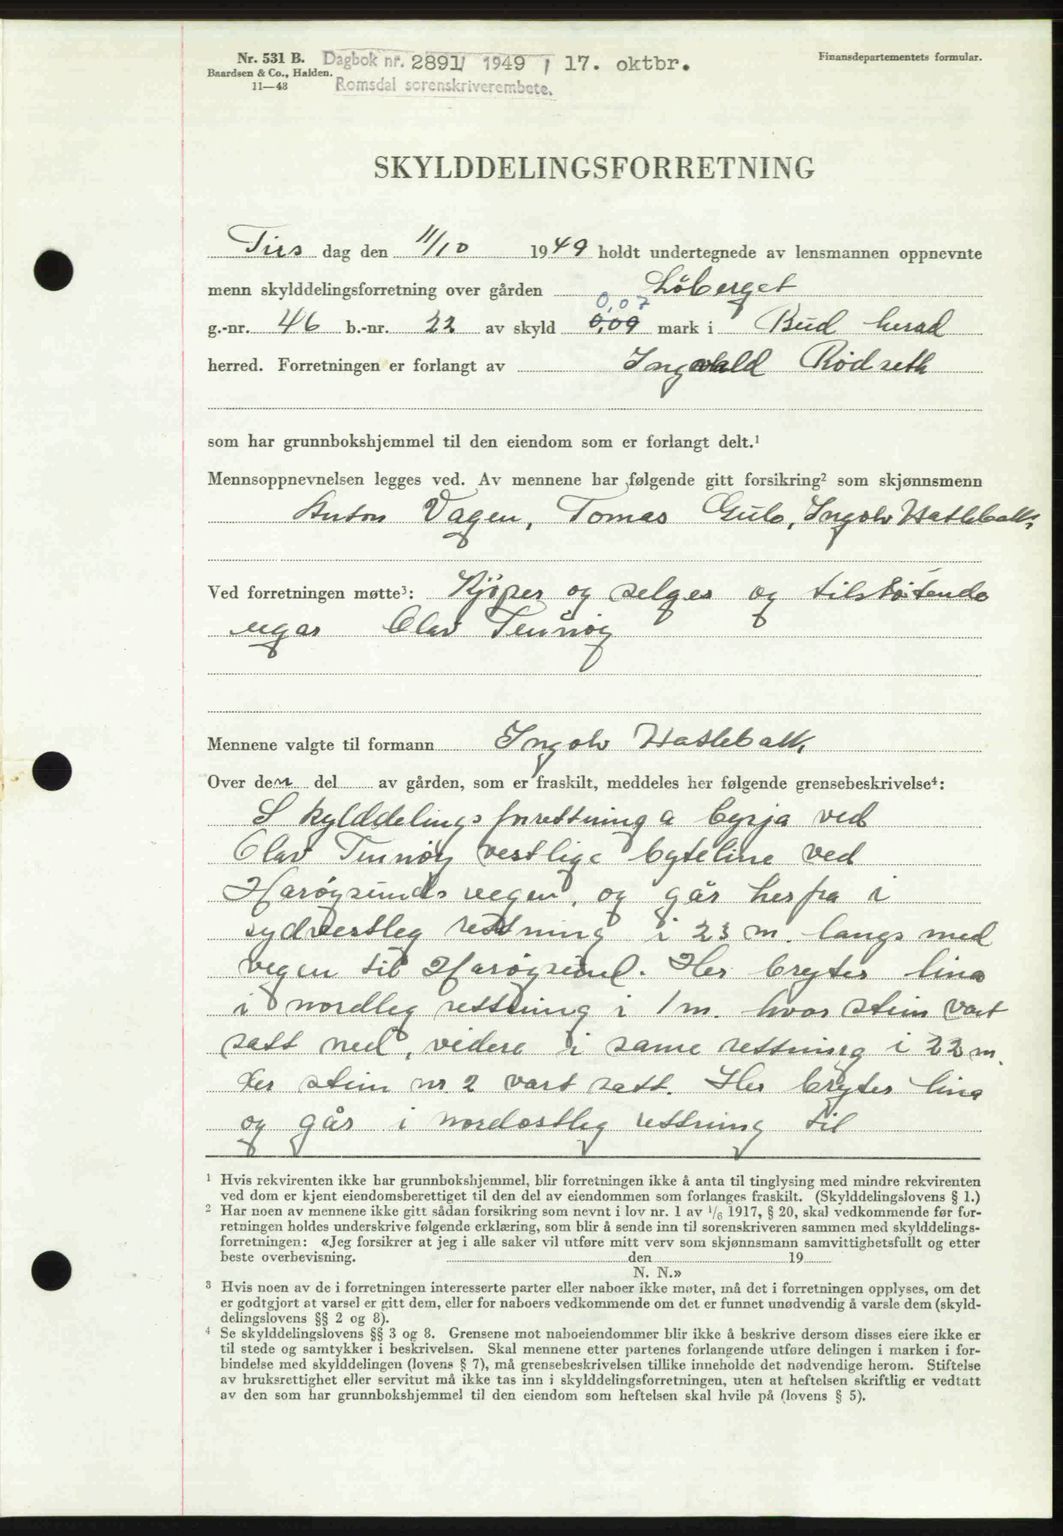 Nr. 531 B.
Baardsen & Co., Halden.
11—48
Dagbok nr. 2891/ 1949 / 17. oktbr.
Romsdal sorenskriverembete.
Finansdepartementets formular.
SKYLDDELINGSFORRETNING
Tirs dag den 11/10 1949 holdt undertegnede av lensmannen oppnevnte
menn skylddelingsforretning over gården Löberget
0,07
g.-nr. 46 b.-nr. 22 av skyld 0,09 mark i Bud herad
herred. Forretningen er forlangt av Ingvald Rödseth
som har grunnbokshjemmel til den eiendom som er forlangt delt.¹
Mennsoppnevnelsen legges ved. Av mennene har følgende gitt forsikring² som skjønnsmenn
Anton Vagen, Tomas Gule, Ingolv Haslebakk,
Ved forretningen møtte³: Kjöper og selger og tilstötende
eigar Olav Tennöy
Mennene valgte til formann Ingolv Haslebakk,
Over den del av gården, som er fraskilt, meddeles her følgende grensebeskrivelse⁴:
Skylddelingsforrettninga byrja ved
Olav Tennöy vestlige byteline ved
Haröysunds vegen, og går herfra i
sydvestleg rettning i 23 m. langs med
vegen til Haröysund. Her bryter lina
i nordleg rettning i 1 m. hvor stein vart
satt ned, videre i same rettning i 22 m.
der stein nr 2 vart satt. Her bryter lina
og går i nordostleg rettning til
¹ Hvis rekvirenten ikke har grunnbokshjemmel, blir forretningen ikke å anta til tinglysing med mindre rekvirenten
ved dom er kjent eiendomsberettiget til den del av eiendommen som forlanges fraskilt. (Skylddelingslovens § 1.)
² Har noen av mennene ikke gitt sådan forsikring som nevnt i lov nr. 1 av 1/6 1917, § 20, skal vedkommende før for-
retningen holdes underskrive følgende erklæring, som blir å sende inn til sorenskriveren sammen med skylddelings-
forretningen: «Jeg forsikrer at jeg i alle saker vil utføre mitt verv som skjønnsmann samvittighetsfullt og etter
beste overbevisning. den 19
N. N.»
³ Hvis noen av de i forretningen interesserte parter eller naboer ikke møter, må det i forretningen opplyses, om det
er godtgjort at varsel er gitt dem, eller for naboers vedkommende om det er funnet unødvendig å varsle dem (skyld-
delingslovens §§ 2 og 8).
⁴ Se skylddelingslovens §§ 3 og 8. Grensene mot naboeiendommer blir ikke å beskrive dersom disses eiere ikke er
til stede og samtykker i beskrivelsen. Skal mennene etter partenes forlangende utføre delingen i marken i for-
bindelse med skylddelingen (lovens § 7), må grensebeskrivelsen tillike inneholde det nødvendige herom. Stiftelse
av bruksrettighet eller servitut må ikke tas inn i skylddelingsforretningen, uten at heftelsen skriftlig er vedtatt
av den som har grunnbokshjemmel til den eiendom som heftelsen skal hvile på (lovens § 5).